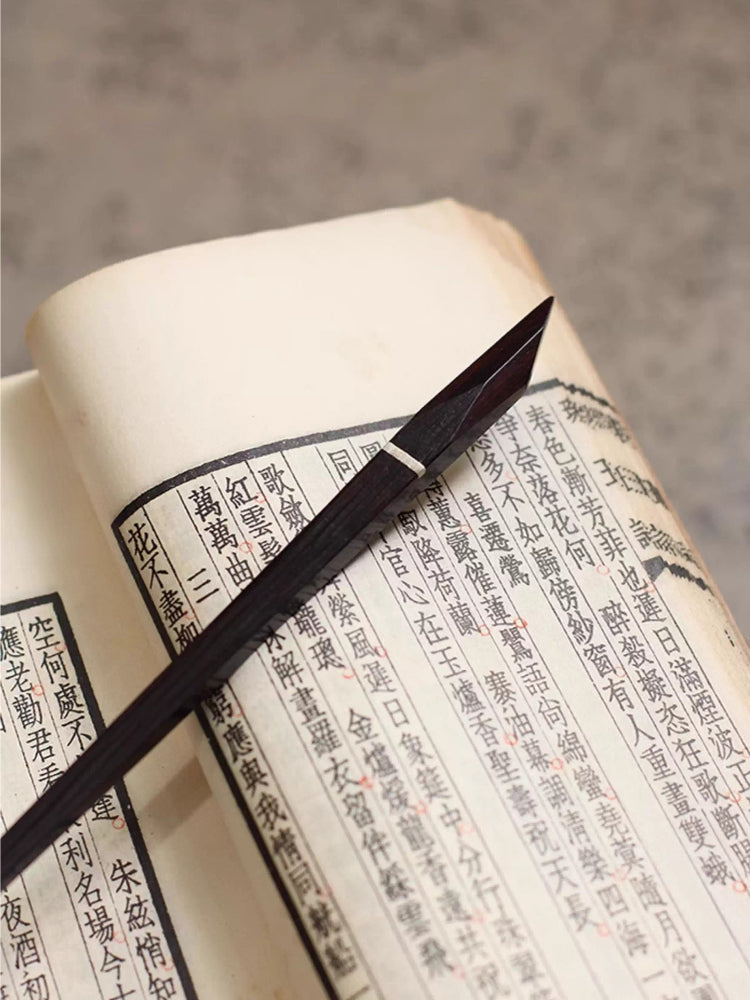 春色漸芳菲也遲日滿煙波正
爭奈落花何 醉殺擬恣狂歌斷腸
多不如歸傍紗窗有人重畫雙蛾
喜遷鶯
蕙露催蓮鶯語尚綿蠻堯蓂隨月欲
降荷蘭 褰油幕調清樂四海一
官心在玉爐香聖壽祝天長
同
歌斂 縈風遲日象筵中分行珠翠
紅雲髻 瓏璁 金爐煖龍香遠共祝
萬萬曲 休解畫羅衣留伴綵雲飛
三
花不盡柳 窮應與我情同觥船一
空何處不 逢 朱絃悄知
應老勸君看 利名場今
夜酒初